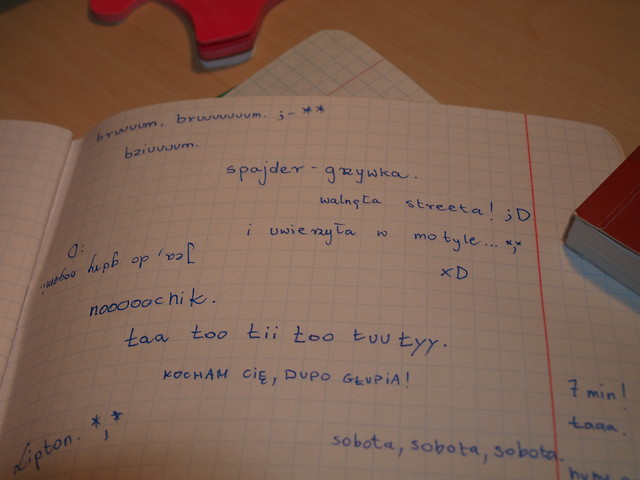 bruuum, bruuuuuum. ;-**
bziuuuum.
spajder-grzywka.
walnęła streeta! ;D
i uwierzyła w motyle... *,*
xD
do góry nogami. :D
nooooochik.
łaa łoo łii łoo łuu łyy.
KOCHAM CIĘ, DUPO GŁUPIA!
7 min!
łaaa.
Lipton. *,*
sobota, sobota, sobota.